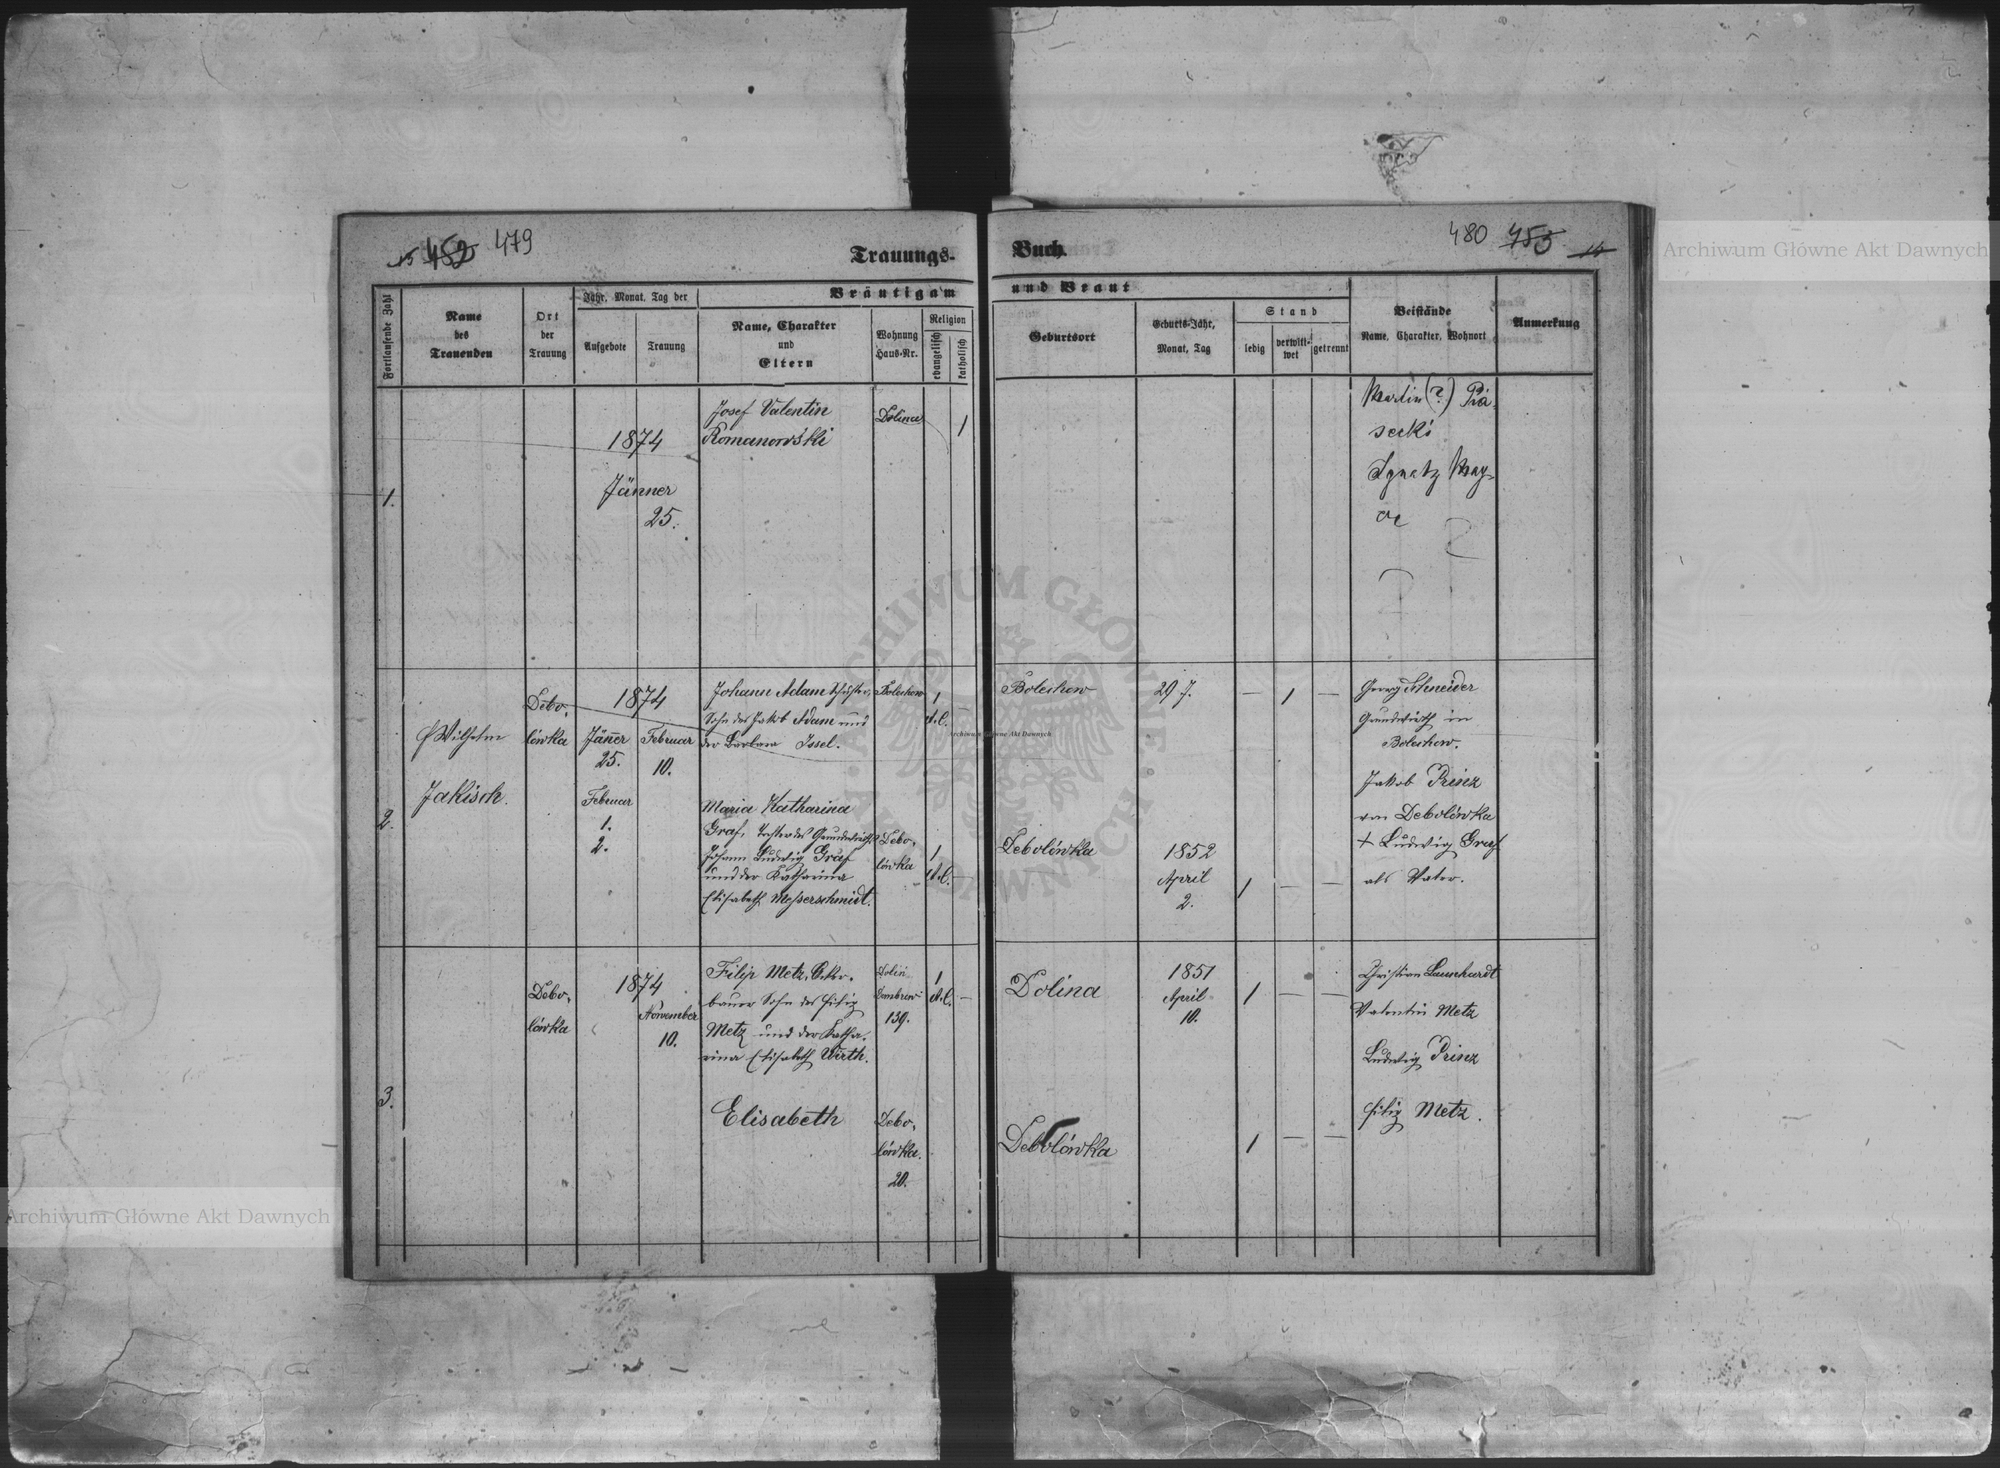 15 452 479
Trauungs-
Fortlaufende Zahl
Name
des
Trauenden
Ort
der
Trauung
Jahr, Monat, Tag der
Aufgebote
Trauung
Bräutigam
Name, Charakter
und
Eltern
Wohnung
Haus-Nr.
Religion
evangelisch
katholisch
1.
1874
Jänner
25.
Josef Valentin
Romanowski
Dolina
1
2.
Wilhelm
Jakisch.
Debo-
lówka
1874
Jänner
25.
Februar
1.
2.
Februar
10.
Johann Adam Schuster,
Sohn des Jakob Adam und
der Barbara Issel.
Bolechow
1
A.C. —
Maria Katharina
Graf, Tochter des Grundwirths
Johann Ludwig Graf
und der Katharina
Elisabeth Messerschmidt.
Debo-
lówka
1
A.C. —
3.
Debo-
lówka
1874
November
10.
Filip Metz, Acker-
bauer Sohn des Filip
Metz und der Katha-
rina Elisabeth Wirth.
Dolin
Dombrow
139.
1
A.C. —
Elisabeth
Debo-
lówka.
20.
480 453 14
Buch
und Braut
Geburtsort
Geburts-Jahr,
Monat, Tag
Stand
ledig
verwit-
wet
getrennt
Beistände
Name, Charakter, Wohnort
Anmerkung
Martin (?) Pia-
secki
Ignatz May-
er
?
?
Bolechow
29 J.
— 1 —
Georg Schneider
Grundwirth in
Bolechow.
Jakob Prinz
von Debolówka
+ Ludwig Graf
als Vater.
Debolówka
1852
April
2.
1 — —
Dolina
1851
April
10.
1 — —
Christian Launhardt
Valentin Metz
Ludwig Prinz
Filip Metz.
Debolówka
1 — —
Archiwum Główne Akt Dawnych
Archiwum Główne Akt Dawnych
Archiwum Główne Akt Dawnych
ARCHIWUM GŁÓWNE AKT DAWNYCH